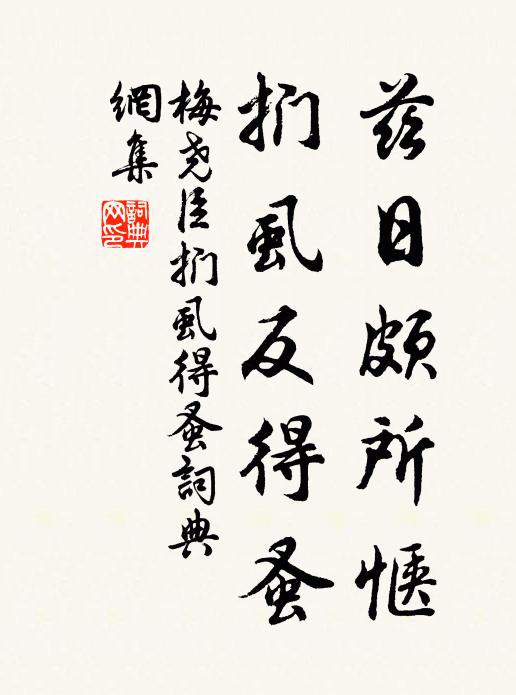 茲日頗所愜
捫虱反得蚤
梅堯臣捫虱得蚤詞典
網集
詞典網印